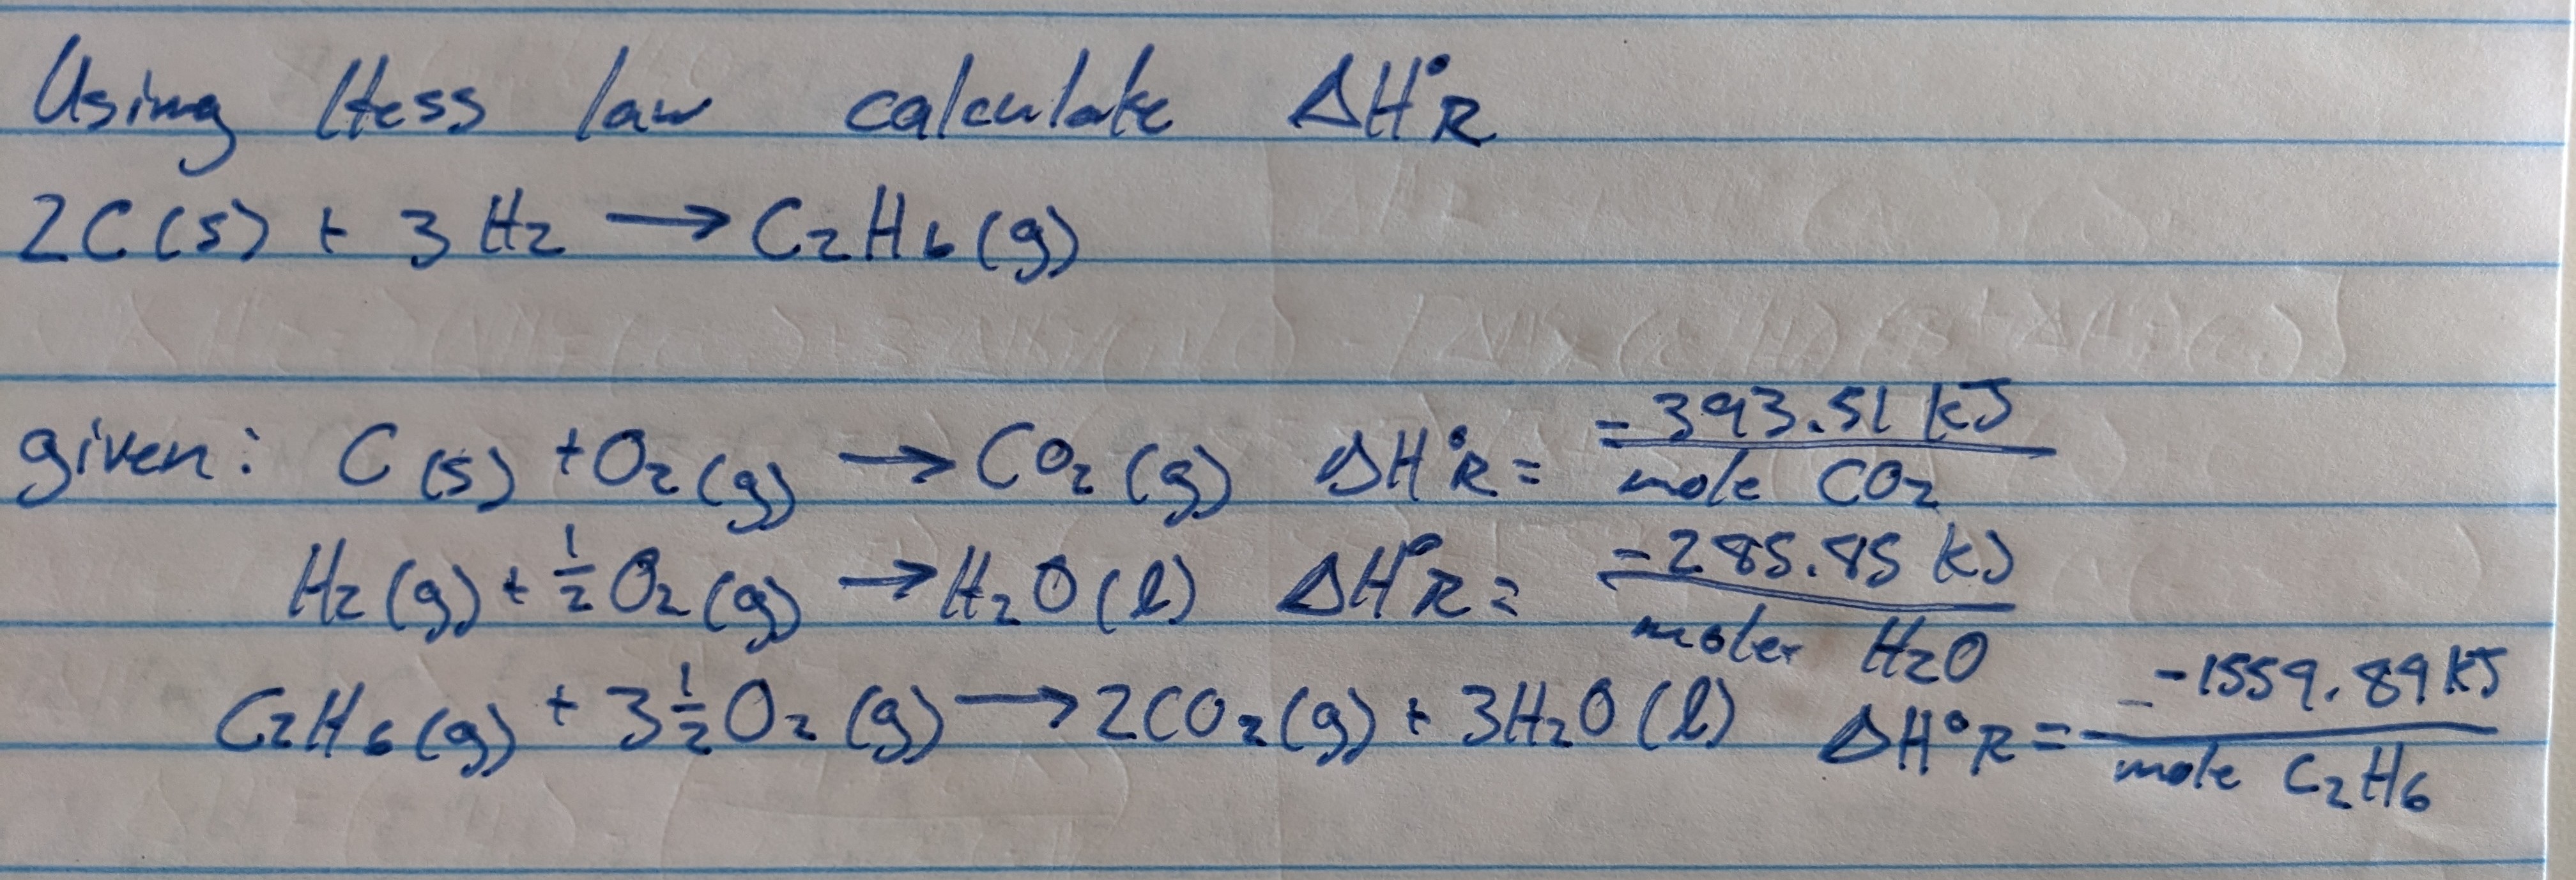 Using Hess law calculate ΔH°R
2C(s) + 3H₂ → C₂H₆(g)
given: C(s) + O₂(g) → CO₂(g) ΔH°R = -393.51 kJ / mole CO₂
H₂(g) + 1/2 O₂(g) → H₂O(l) ΔH°R = -285.85 kJ / moles H₂O
C₂H₆(g) + 3 1/2 O₂(g) → 2CO₂(g) + 3H₂O(l) ΔH°R = -1559.89 kJ / mole C₂H₆